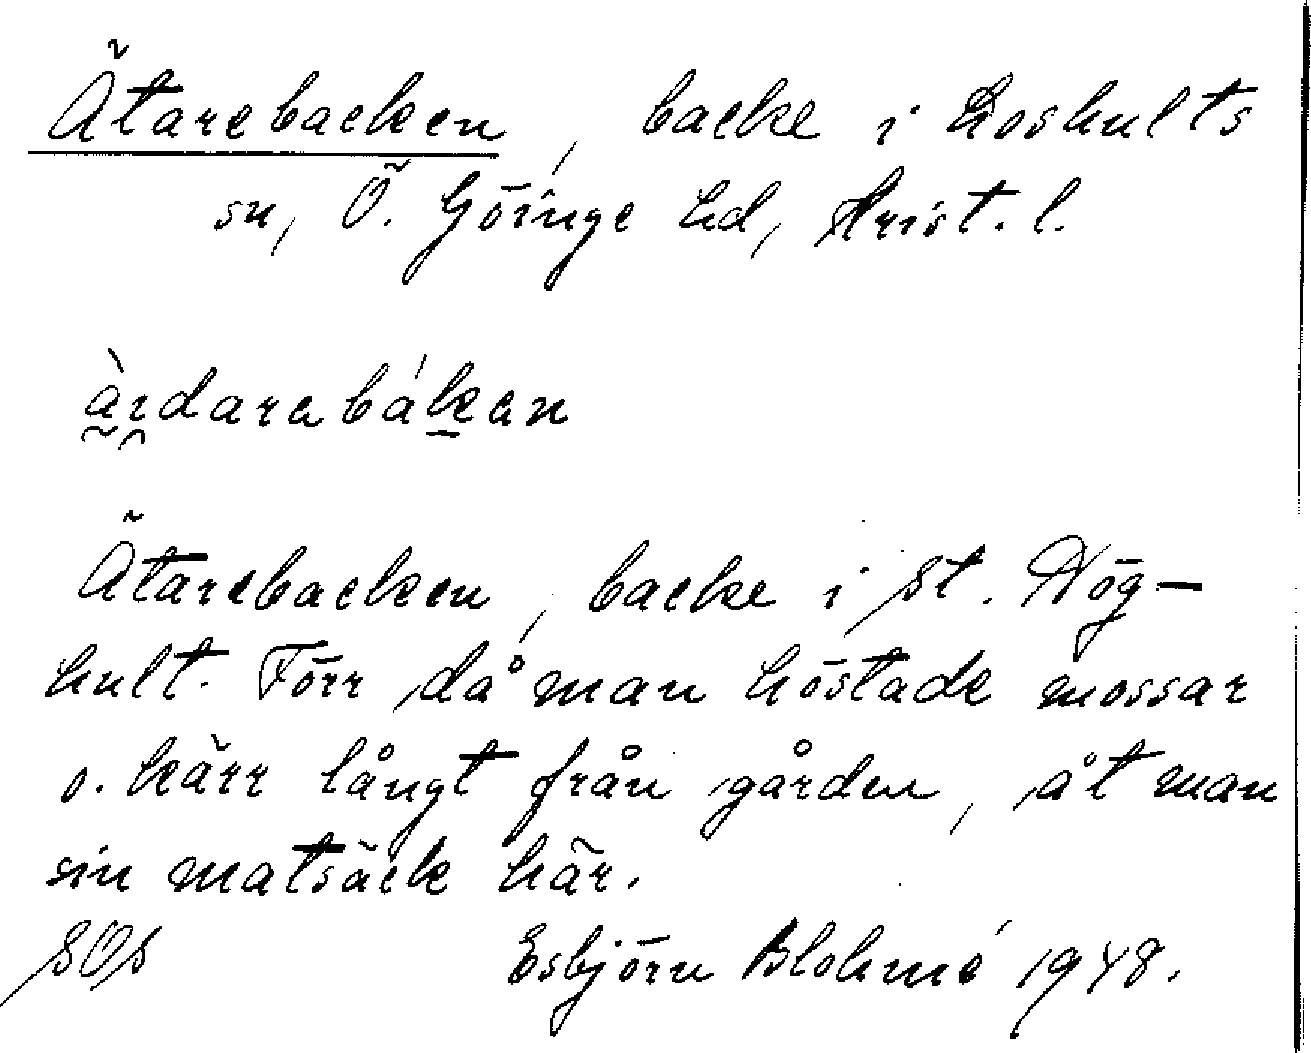 Ätarebacken, backe i Loshults
sn, Ö. Göinge hd, Krist. l.
àrdarabákan
Ätarebacken, backe i St. Hög-
hult. Förr då man höstade mossar
o. kärr långt från gården, åt man
sin matsäck här.
SOS Esbjörn Blohmé 1948.